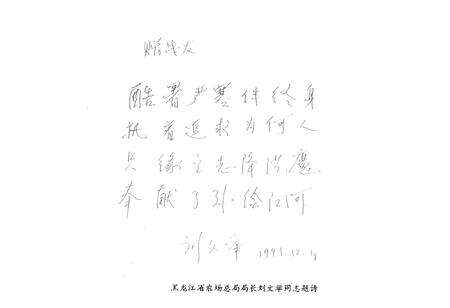 赠战友
酷署严寒伴终身
执着追求为何人
只缘立志降洪魔
奉献了引绘江河
刘文举 1991.12.11
黑龙江省农场总局局长刘文举同志题诗